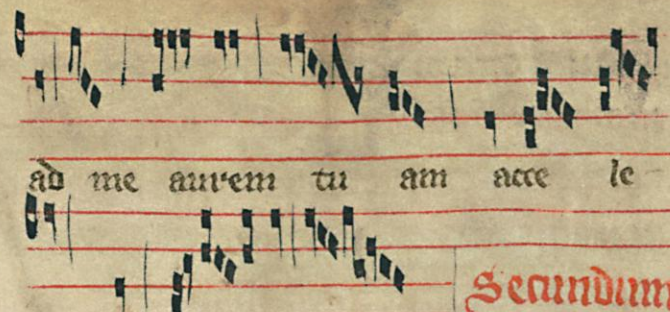 ad me aurem tu am acce le
Secundum